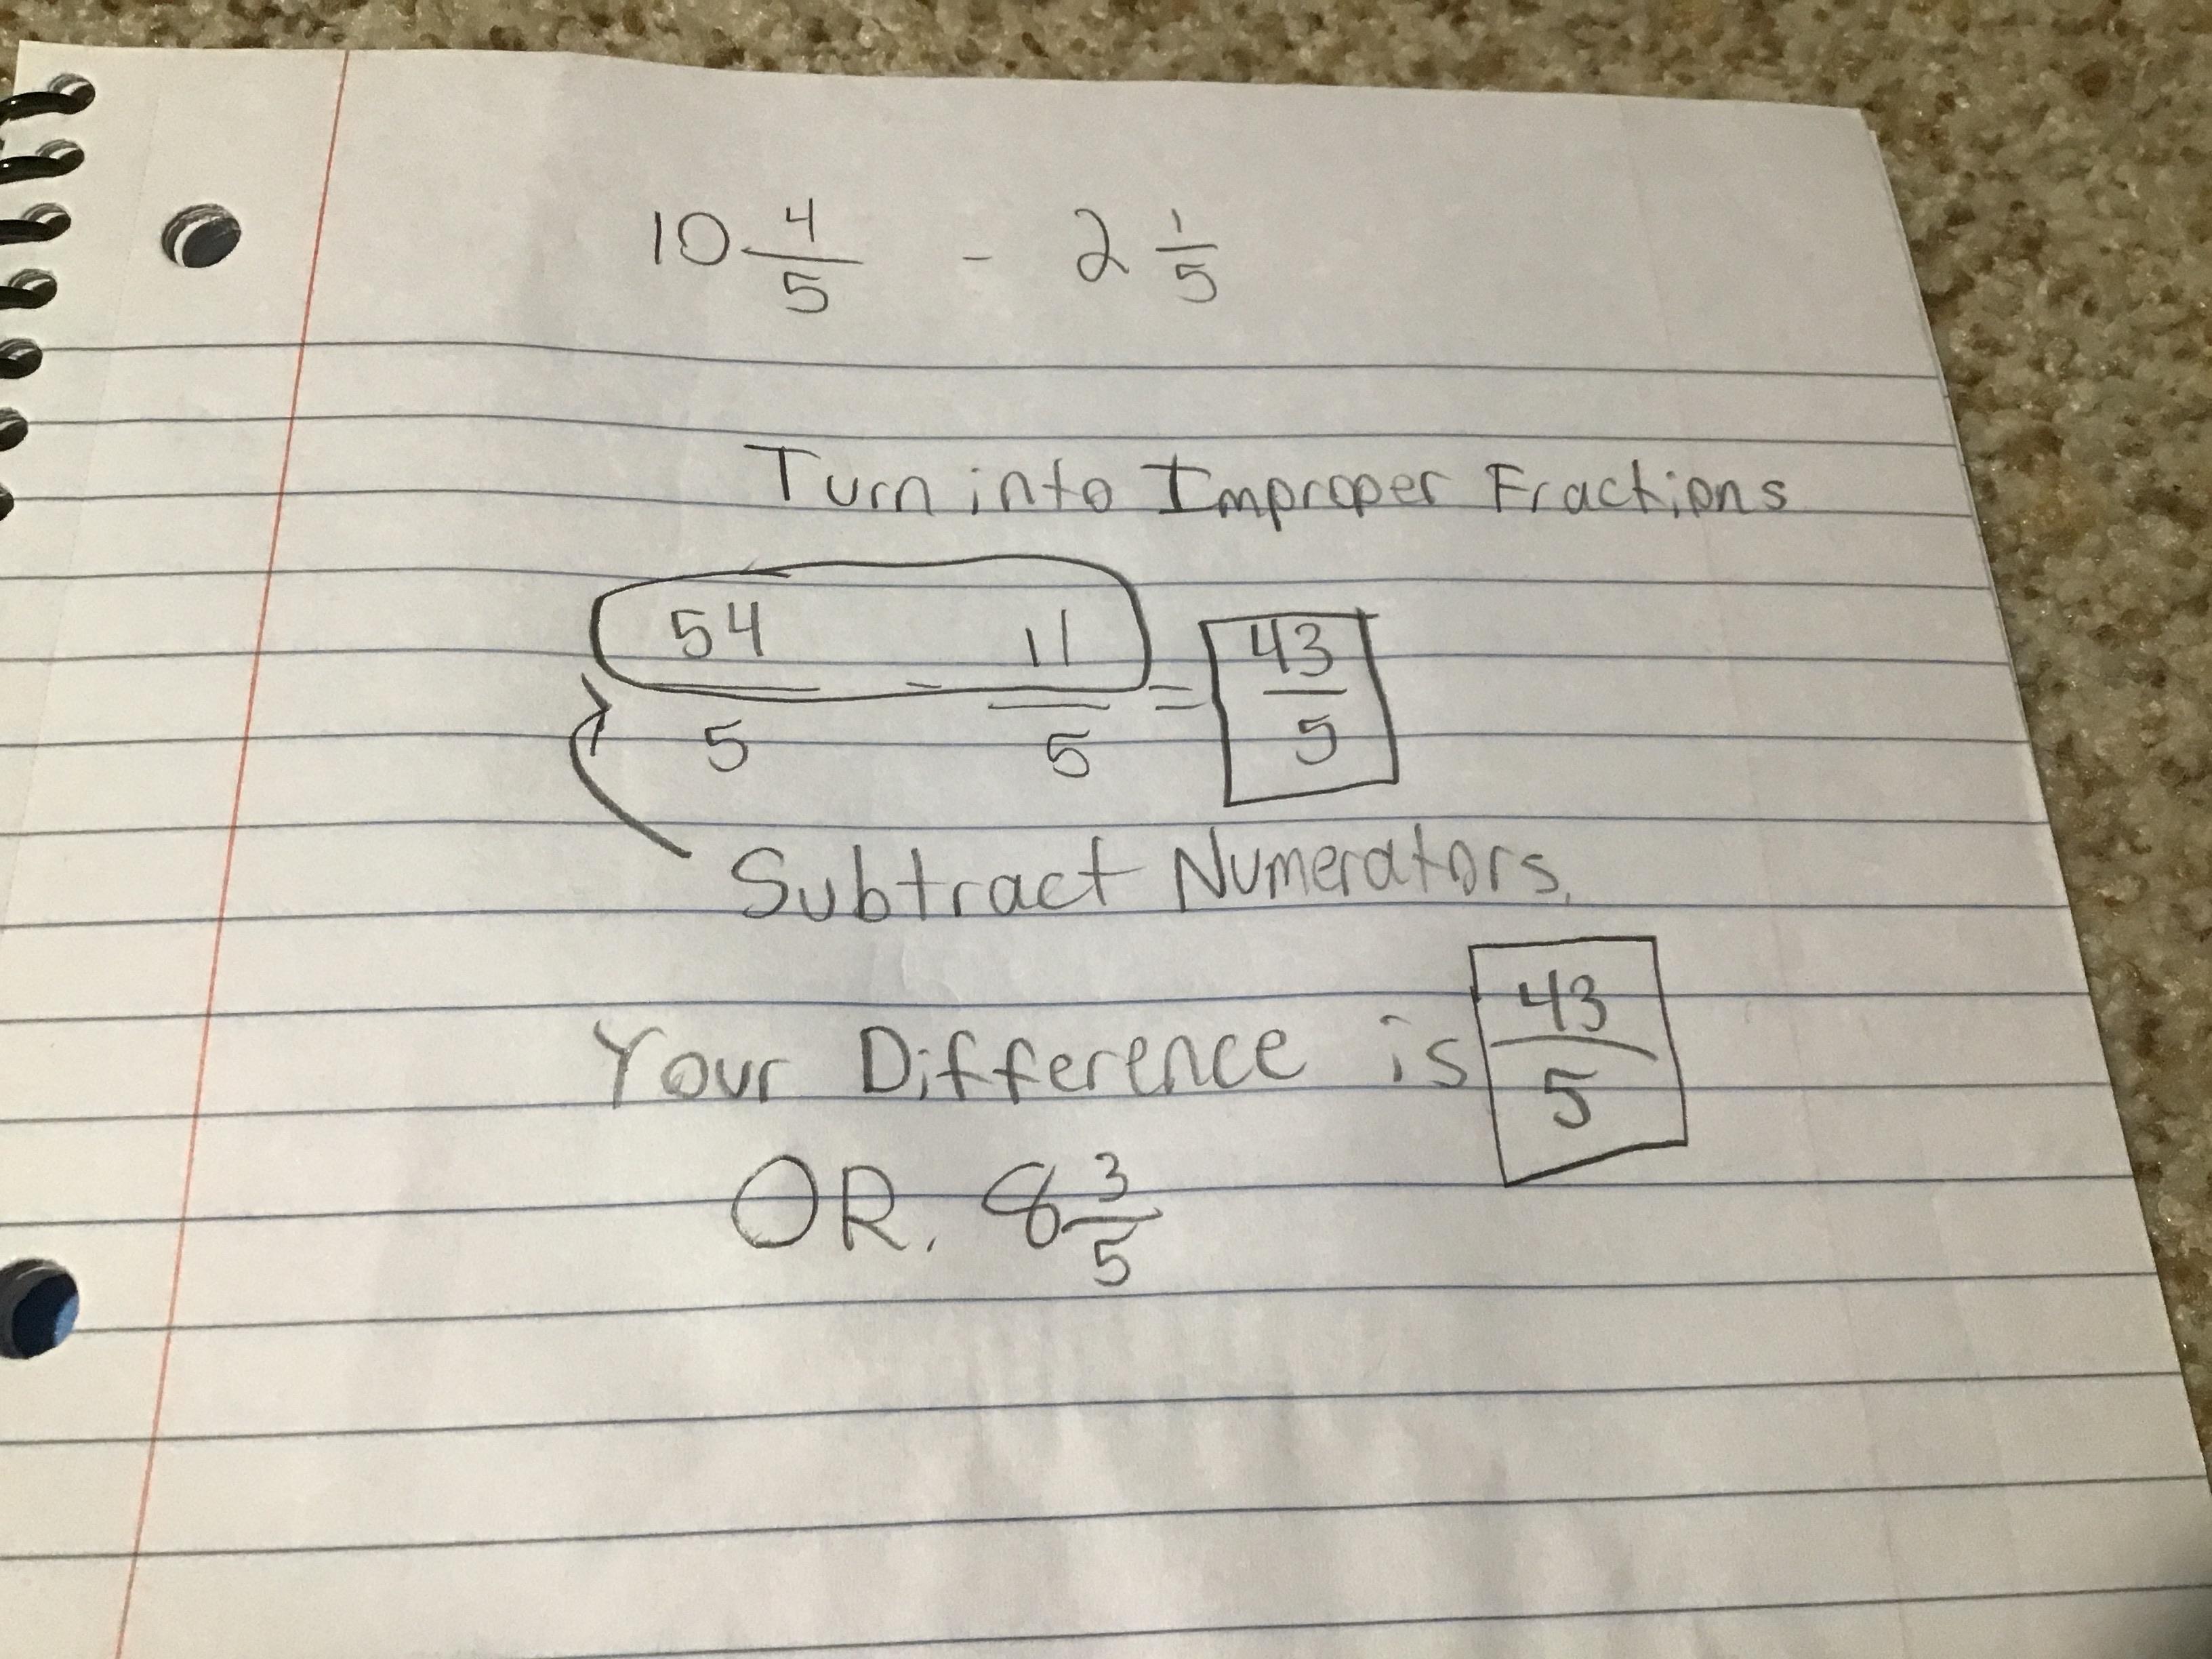 10 4/5 - 2 1/5
Turn into Improper Fractions
54/5 - 11/5 = 43/5
Subtract Numerators.
Your Difference is 43/5
OR. 8 3/5